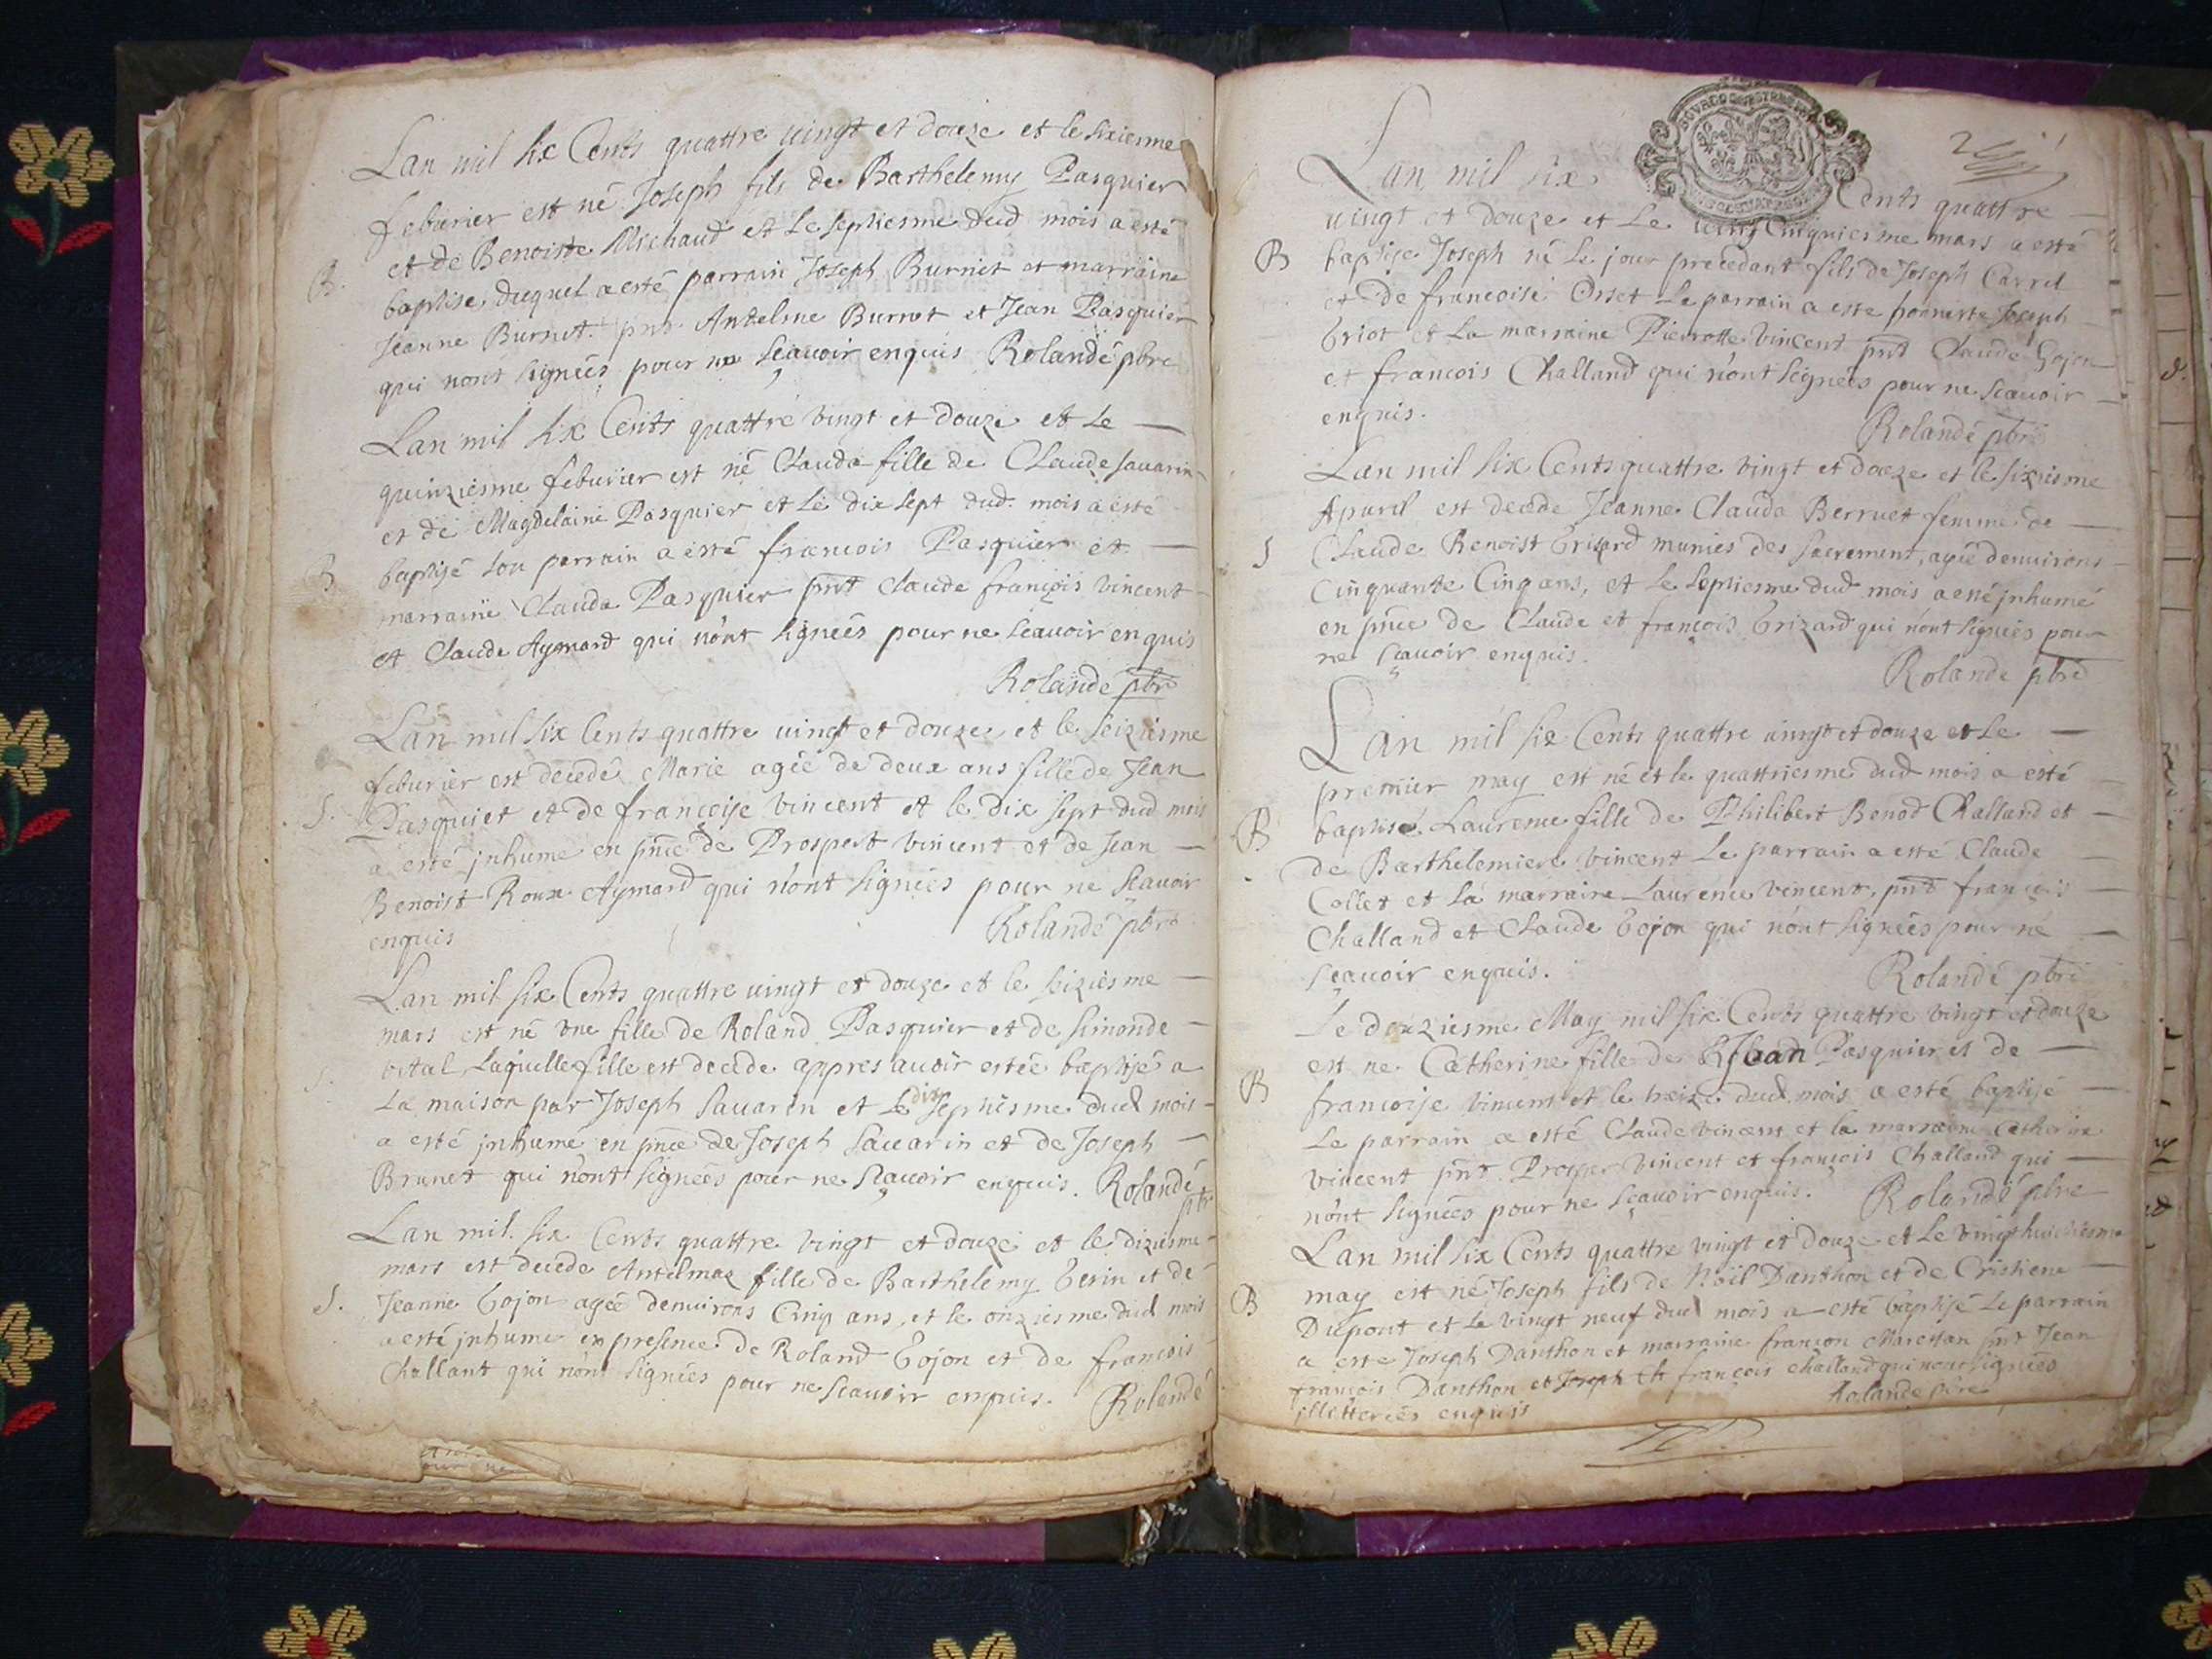 Lan mil six Cents quattre vingt et douze et le sixiesme
feburier est né Joseph fils de Barthelemy Pasquier
et de Benoiste Michaud et le septiesme dud mois a esté
B. baptisé duquel a esté parrain Joseph Burnet et marraine
Jeanne Burnet. pnt Antelme Burnet et Jean Pasquier
qui nont signées pour ne sçauoir enquis Rolandé pbre
Lan mil six Cents quattre vingt et douze et le
quinziesme feburier est né Clauda fille de Claude sauarin
et de Magdelaine Pasquier et le dix sept dud. mois a esté
B baptisé son parrain a esté francois Pasquier et
marraine Clauda Pasquier pnt Claude françois vincent
et Claude Aymard qui nónt signées pour ne scauoir enquis
Rolandé pbre
Lan mil six Cents quattre vingt et douze et le seiziesme
feburier est decedé Marie agée de deux ans fille de Jean
S. Pasquier et de françoise vincent et le dix sept dud mois
a esté jnhume en pnce de Prospert vincent et de Jean
Benoist Roux Aymard qui nónt signées pour ne sçauoir
enquis
Rolandé pbre
Lan mil six Cents quattre vingt et douze et le seiziesme
mars est né vne fille de Roland Pasquier et de simonde
vital, Laquelle fille est decede appres auoir estée baptisé a
S. La maison par Joseph sauarin et le dix septiesme dud mois
a esté jnhumé en pnce de Joseph sauarin et de Joseph
Brunet qui nónt signées pour ne sçauoir enquis. Rolandé
pbr
Lan mil six Cents quattre vingt et douze et le diziesme
mars est decede Antelmaz fille de Barthelemy Gerin et de
S. Jeanne Gojon agée denuirons Cinq ans, et le onziesme dud mois
a esté jnhume en presence de Roland Gojon et de francois
Challant qui nónt signées pour ne scauoir enquis. Rolandé
Lan mil six Cents quattre
vingt et douze et Le Cinquiesme mars a esté
B baptise Joseph né Le jour precedant fils de Joseph Carrel
et de francoise Orset Le parrain a este honneste Joseph
Griot et La marraine Pierrotte vincent pnt Claude Gojon
et francois Challand qui nónt signées pour ne scauoir
enquis.
Rolandé pbre
Lan mil six Cents quattre vingt et douze et le sixiesme
Apuril est decede Jeanne Clauda Berruet femme de
S Claude Benoist Grizard munies des sacrement, agée denuirons
Cinquante Cinq ans, et le septiesme dud mois a esté jnhumé
en pnce de Claude et françois Grizard qui nónt signées pour
ne sçauoir enquis.
Rolande pbre
Lan mil six Cents quattre vingt et douze et Le
premier may est né et le quattriesme dud mois a esté
B baptisé Laurence fille de Philibert Benod Challand et
de Barthelemiere vincent Le parrain a esté Claude
Collet et la marraine Laurence vincent, pnt françois
Challand et Claude Gojon qui nónt signées pour ne
sçauoir enquis.
Rolandé pbre
Le douziesme May mil six Cents quattre vingt et douze
est ne Catherine fille de Jean Pasquier et de
B francoise vincent et le treize dud mois a esté baptisé
Le parrain a esté Claude vincent et la marraine Catherine
vincent pnt. Prosper vincent et françois Challand qui
nónt signées pour ne sçauoir enquis. Rolandé pbre
Lan mil six Cents quattre vingt et douze et Le vingt huictiesme
may est né Joseph fils de Noïl Danthon et de Cristiene
B Dupont et Le vingt neuf dud mois a esté baptisé Le parrain
a este Joseph Danthon et marraine françon pnt Jean
françois Danthon et Joseph et françois challand qui nont signées
jlletterées enquis
Rolande pbre